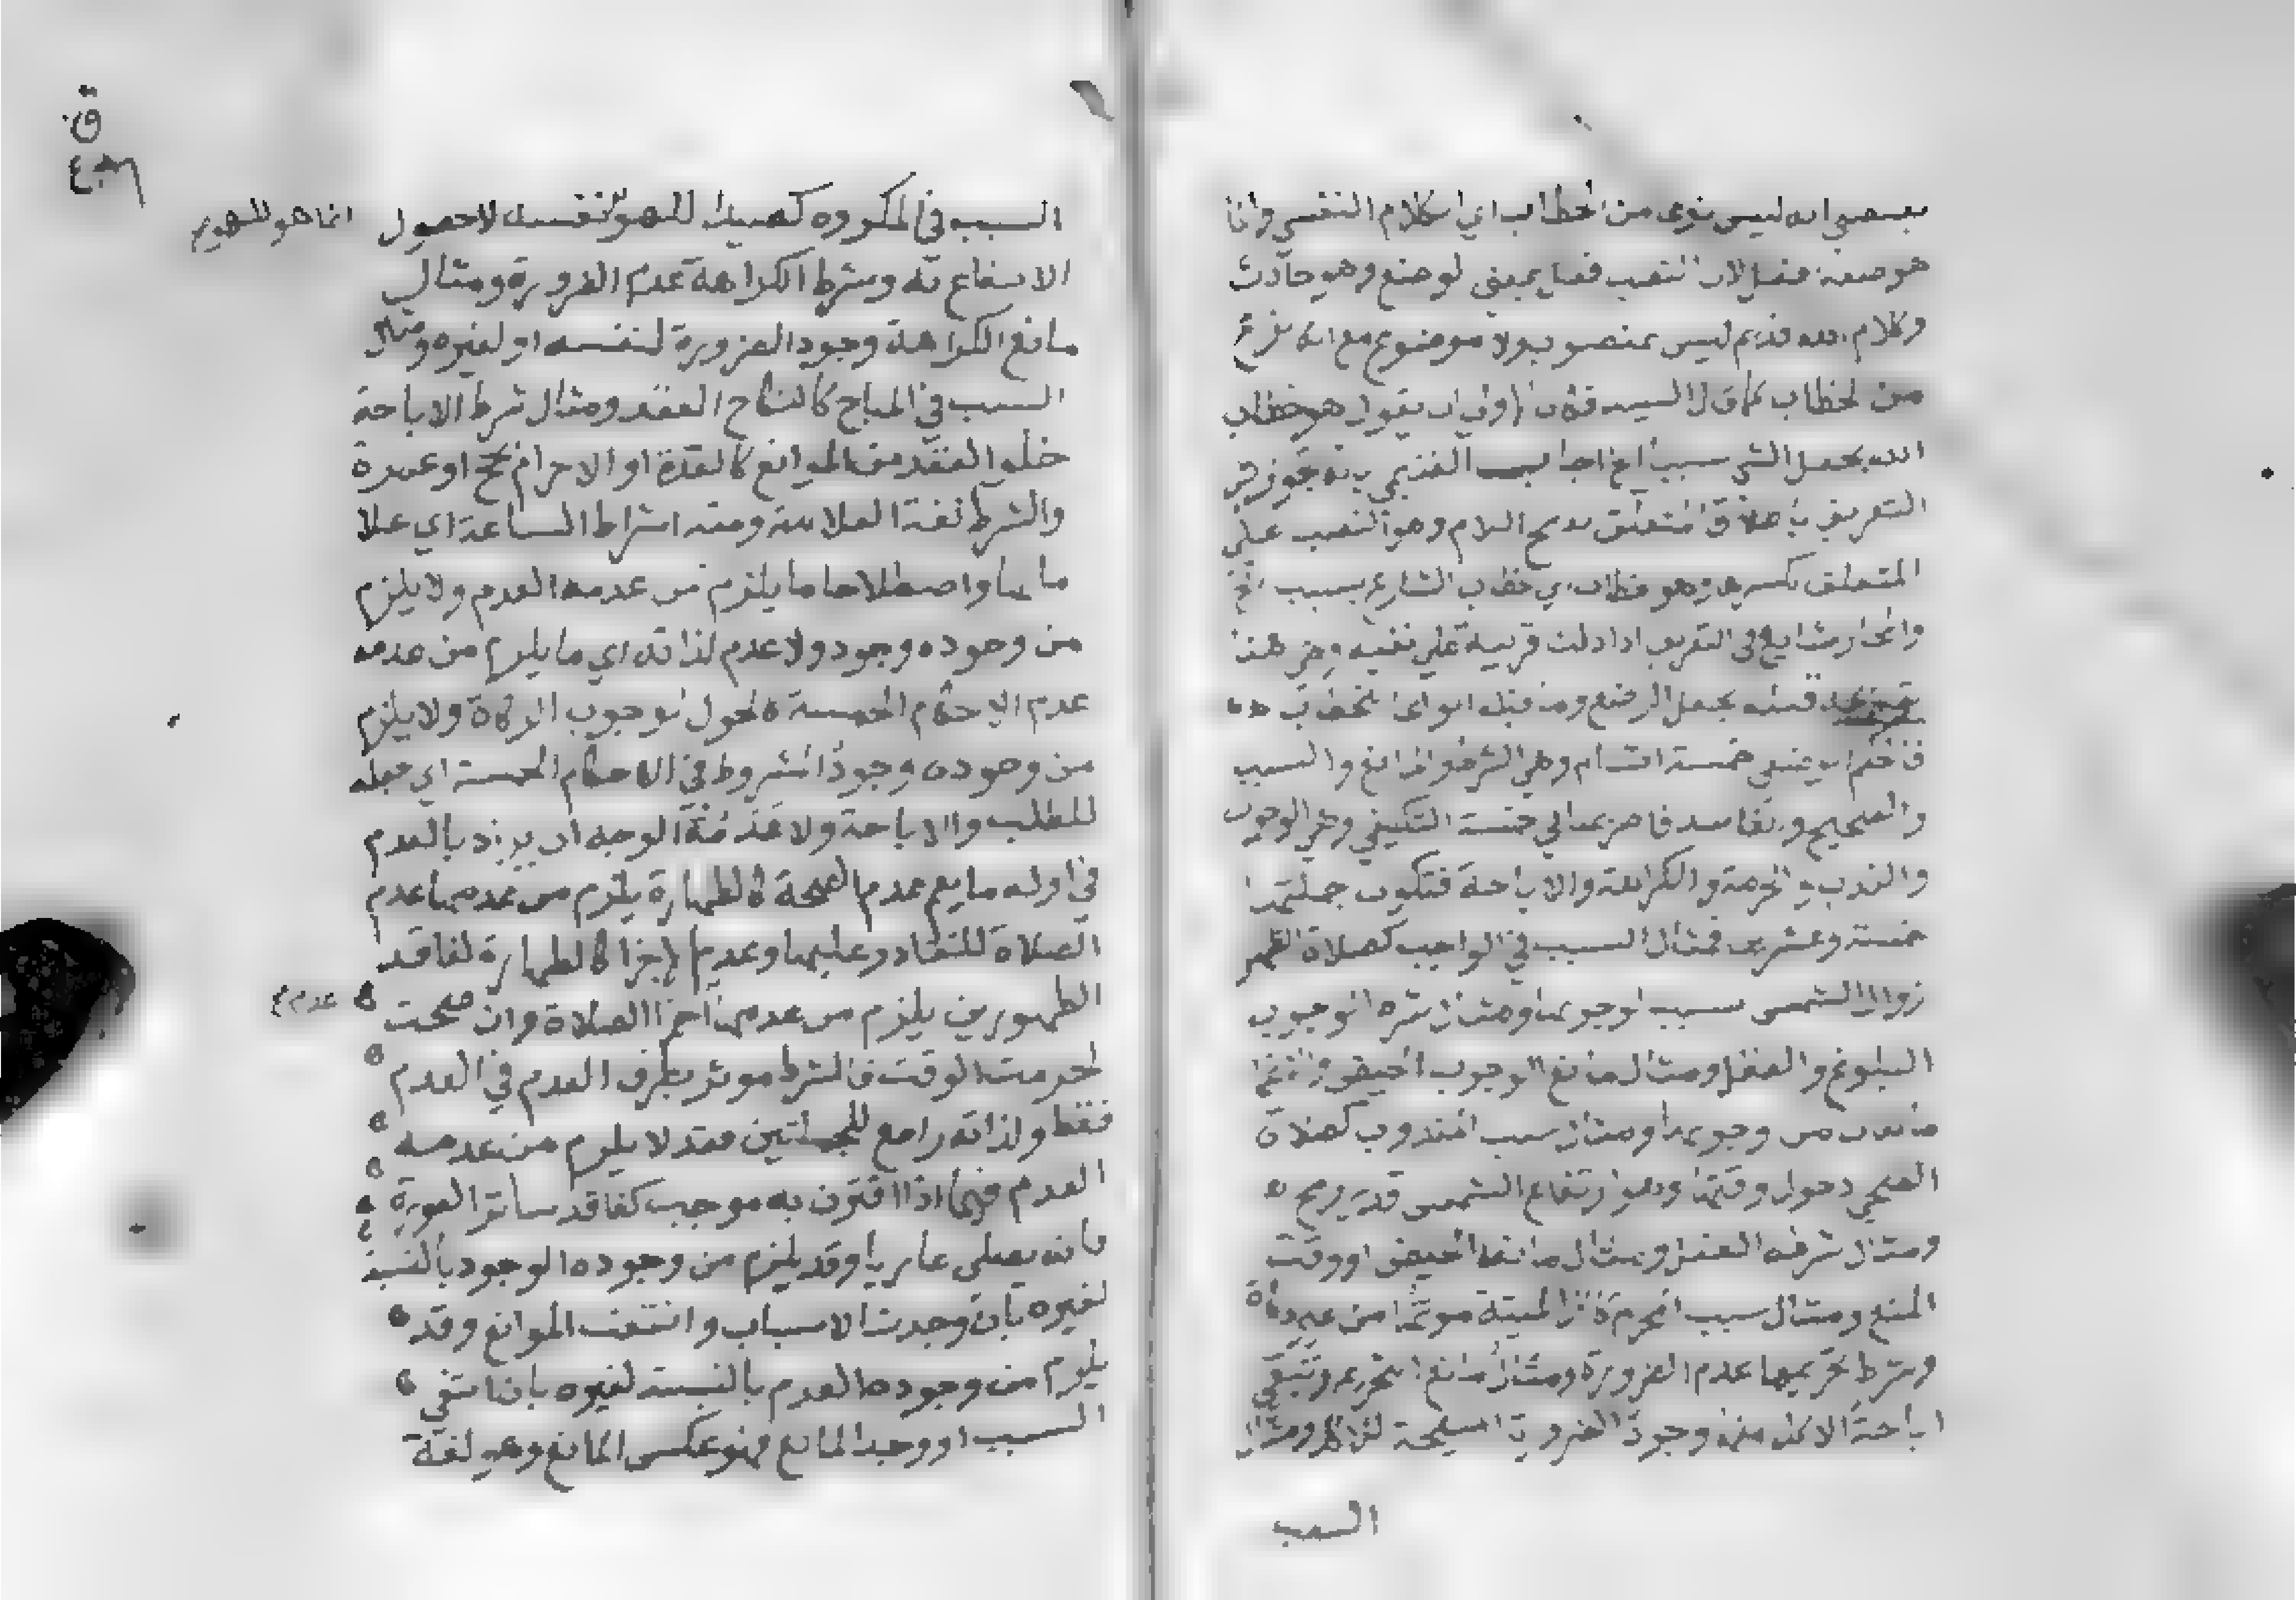 انه ليس نوعا من الخطاب اي الكلام النفسي وانما
هو صفة فعل لان النصب فعل بمعنى الوضع وهو حادث
وكلام الله قديم ليس بمنصوب ولا موضوع مع انه نوع
من الخطاب هو خطاب
الله بجعل الشي سببا الخ اجاب الغنيمي بانه تجوز في
التعريف باطلاق المتعلق بفتح اللام وهو النصب على
المتعلق بكسرها وهو خطاب اي خطاب الشارع بسبب الخ
والمجاز شايع في التعريف اذا دلت قرينة على نفسه وهي هنا
قوله بجعل الوضع وما قبله انواع الخطاب
فالحكم الوضعي خمسة اقسام وهي الشرط والمانع والسبب
والصحيح والفاسد فاضربها في خمسة التكليفي وهي الوجوب
والندب والحرمة والكراهة والاباحة فتكون جملتها
خمسة وعشرين فمثال السبب في الواجب كصلاة الظهر
زوال الشمس سبب لوجوبها ومثال شرط الوجوب
البلوغ والعقل ومثال مانع الوجوب الحيض والاغما
مانعان من وجوبها ومثال سبب المندوب كصلاة
الضحى دخول وقتها وهو ارتفاع الشمس قدر رمح
ومثال شرطه العقل ومثال مانعه الحيض او وقت
المنع ومثال سبب المحرم كاكل الميتة موتها من غير ذكاة
وشرط تحريمها عدم الضرورة ومثال مانع التحريم وتبقى
اباحة الاكل منها وجود الضرورة المبيحة للاكل ومثال
السبب
السبب في المكروه كصيد اللهو نفسه لا حصول انما هو اللهو
الانتفاع به وشرط الكراهة عدم الضرورة ومثال
مانع الكراهة وجود الضرورة لنفسه او لغيره ومثال
السبب في المباح كالنكاح العقد ومثال شرط الاباحة
خلو العقد من الموانع كالعدة او الاحرام بحج او عمرة
والشرط لغة العلامة ومنه اشراط الساعة اي علا
ماتها واصطلاحا ما يلزم من عدمه العدم ولا يلزم
من وجوده وجود ولا عدم لذاته اي ما يلزم من عدمه
عدم الاحكام الخمسة كالحول لوجوب الزكاة ولا يلزم
من وجوده وجود المشروط في الاحكام الخمسة اي جعله
للطلب والاباحة ولا عدمه الوجه ان يريد بالعدم
في اوله ما يعم عدم الصحة كالطهارة يلزم من عدمها عدم
الصلاة للقادر عليها وعدم الاجزا كالطهارة لفاقد
الطهورين يلزم من عدمها اجزا الصلاة وان صحت عدم
لحرمت الوقت فالشرط موثر بطرف العدم في العدم
فقط ولذاته راجع للجملتين فقد لا يلزم من عدمه
العدم فيما اذا اقترن به موجب كفاقد ساتر العورة
فانه يصلى عاريا وقد يلزم من وجوده الوجود بالنسبة
لغيره بان وجدت الاسباب وانتفت الموانع وقد
يلزم من وجوده العدم بالنسبة لغيره بان انتفى
السبب او وجد المانع فهو عكس المانع وهي لغة